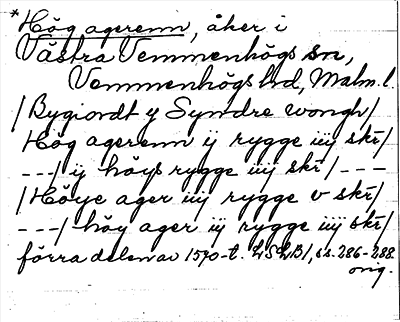 *Hög agerenn, åker i
Västra Vemmenhögs sn,
Vemmenhögs hd, Malm. l.
/Bygiordt y Syndre wongh/
Hög agerenn ij rygge iiij skr/
---/ ij höys rygge iiij skr/ ---
/Höye ager iiij rygge v skr/
---/ höy ager iij rygge iiij skr/
förra delen av 1570-t. LSLB1, ss. 286-288
orig.